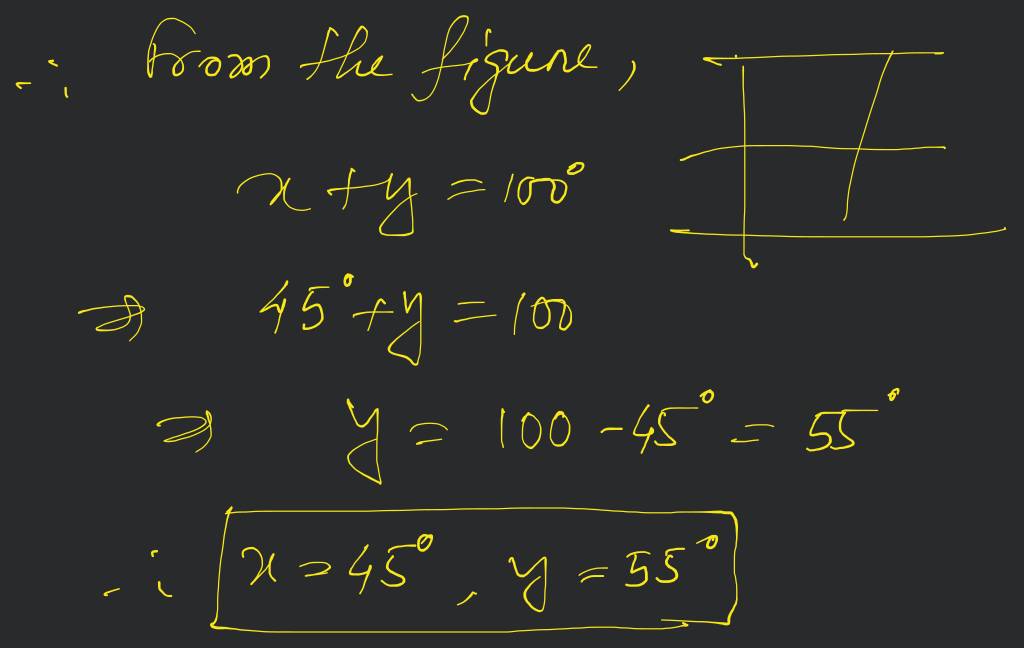 ∴ from the figure,
x + y = 100°
⇒ 45° + y = 100
⇒ y = 100 - 45° = 55°
∴ x = 45°, y = 55°